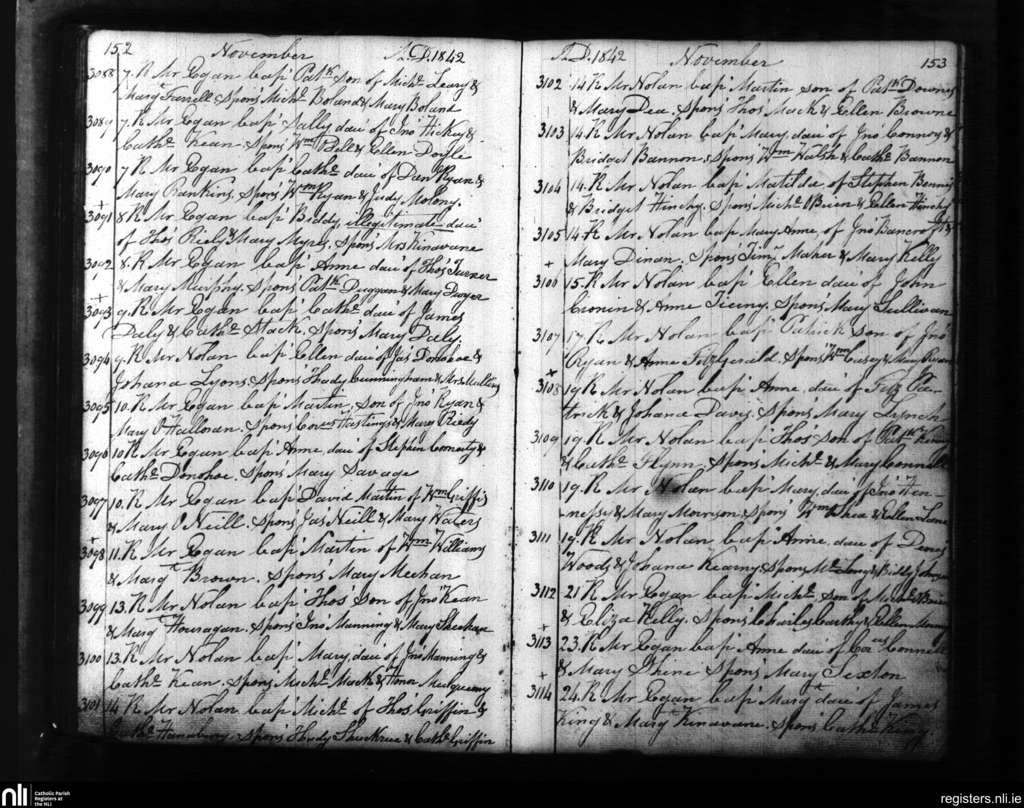 152 November A.D. 1842
3088 7. R Mr Egan bap' Patk son of Michl Leary &
Margt Farrell. Spons' Michl Boland & Mary Boland
3089 7. R Mr Egan bap' Sally dau' of Jno' Hickey &
Cathe Kean. Spons' Wm Bell & Ellen Doyle
3090 7 R Mr Egan bap' Cathe dau' of Dan' Ryan &
Mary Rankins. Spons' Wm Ryan & Judy Molony.
3091 8. R Mr Egan bap' Biddy, illegitimate dau'
of Thos' Riely & Mary Myres. Spons' Mrs Kinavane
3092 8. R Mr Egan bap' Anne dau' of Thos' Turner
& Mary Murphy. Spons' Patk Duggan & Mary Dwyer
3093 9. R Mr Egan bap' Cathe dau' of James
Daly & Cathe Stack. Spons' Mary Daly.
3094 9. R Mr Nolan bap' Ellen dau' of Jas' Donohoe &
Johana Lyons. Spons' Thady Cunningham & Mrs Mullins
3095 10. R Mr Egan bap' Martin, son of Jno' Ryan &
Mary O'Halloran. Spons' Hastings & Mary Riedy
3096 10 R Mr Egan bap' Anne dau' of Stephen &
Cathe Donohoe. Spons' Mary Savage
3097 10. R Mr Egan bap' David Martin of Wm Griffis
& Mary O'Neill. Spons' Jas' Neill & Mary Waters
3098 11. R Mr Egan bap' Martin of Wm Williams
& Margt Brown. Spons' Mary Meehan
3099 13. R Mr Nolan bap' Thos' son of Jno' Kean
& Margt Houragan. Spons' Jno Manning & Mary Sheehan
3100 13. R Mr Nolan bap' Mary, dau' of Jno' Manning &
Cathe Kean. Spons' Michl Mack & Honor
3101 14 R Mr Nolan bap' Michl of Thos' Griffin &
Cathe Hanabury. Spons' Thady & Cathe Griffin
A.D. 1842 November 153
3102 14 R Mr Nolan bap' Martin son of Patk Downes
& Mary Dea. Spons' Thos' Mack & Ellen Browne
3103 14. R Mr Nolan bap' Mary, dau' of Jno' Connors &
Bridget Bannon. Spons' Wm Walsh & Cathe Bannon
3104 14. R Mr Nolan bap' Matilda of Stephen Bennis
& Bridget Hinchy. Spons' Michl O'Brien & Ellen Hinchy
3105 14. R Mr Nolan bap' Mary Anne of Jno' Bancroft &
Mary Dinan. Spons' Timy Maher & Mary Kelly
3106 15. R Mr Nolan bap' Ellen dau' of John
Cronin & Anne Tierny. Spons' Mary Sullivan
3107 17 R Mr Nolan bap' Patrick son of Jno'
Ryan & Anne Fitzgerald. Spons' Wm Casey & Mary Ryan
3108 19 R Mr Nolan bap' Anne dau' of Fitz Pa-
trick & Johana Davis. Spons' Mary Lynch
3109 19. R Mr Nolan bap' Thos' son of Patk
& Cathe Flynn. Spons' Michl & Mary Connell
3110 19. R Mr Nolan bap' Mary, dau' of Jno' Hen-
nessy & Mary Morrison. Spons' Wm Shea & Ellen Lane
3111 19. R Mr Nolan bap' Anne dau' of Denis
Woods & Johana Kearny. Spons' & Biddy
3112 21 R Mr Egan bap' Michl son of
& Eliza Kelly. Spons' Charles Carthy & Ellen
3113 23. R Mr Egan bap' Anne dau' of Connell
& Mary Shine Spons' Mary Sexton
3114 24. R Mr Egan bap' Margt dau' of James
King & Mary Kinavane. Spons' Cathe King
nli Catholic Parish
Registers at
the NLI
registers.nli.ie